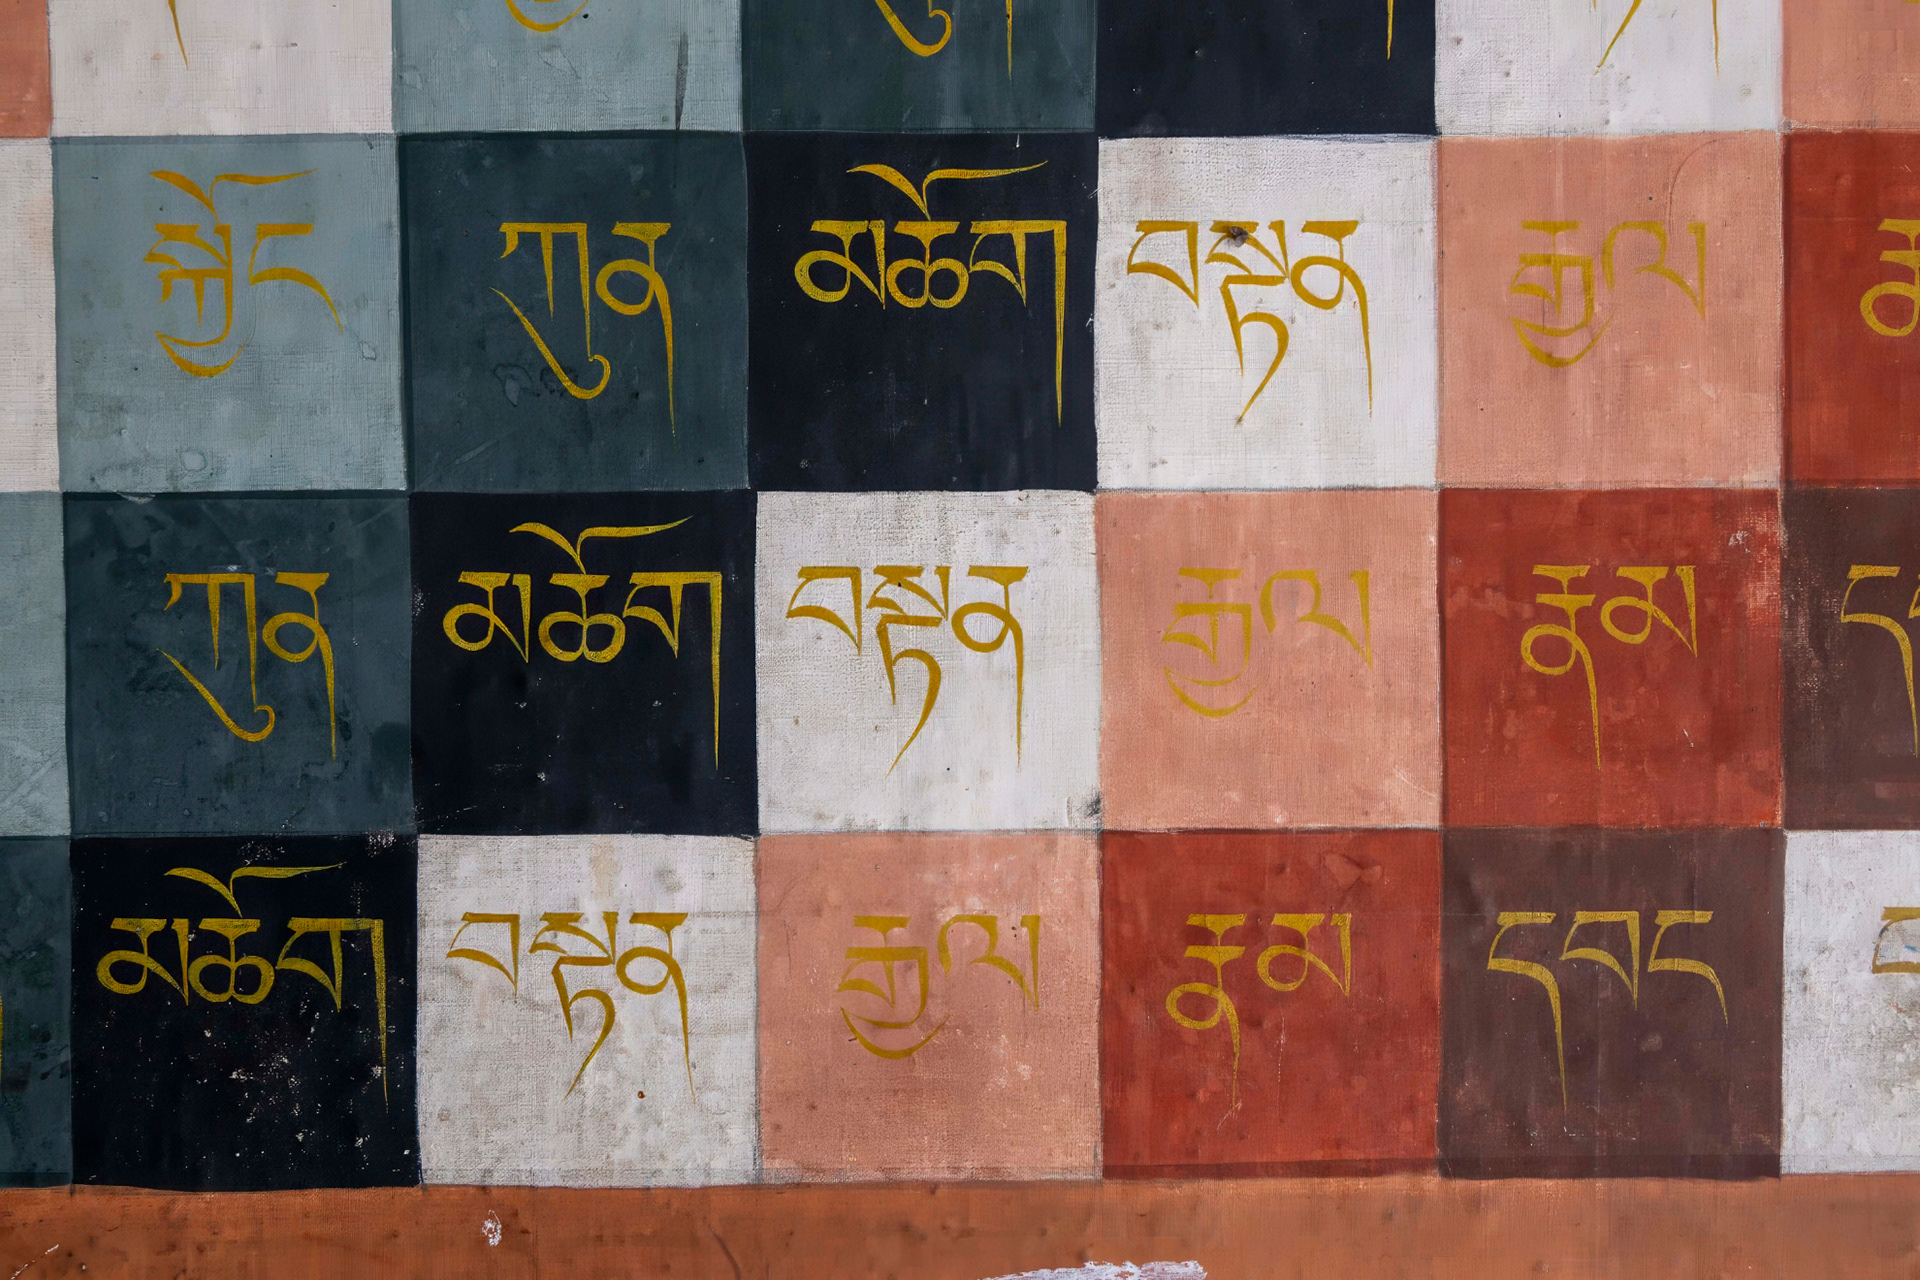 སྐྱོང ཀུན མཆོག བསྟན རྒྱལ
ཀུན མཆོག བསྟན རྒྱལ རྣམ
མཆོག བསྟན རྒྱལ རྣམ དབང